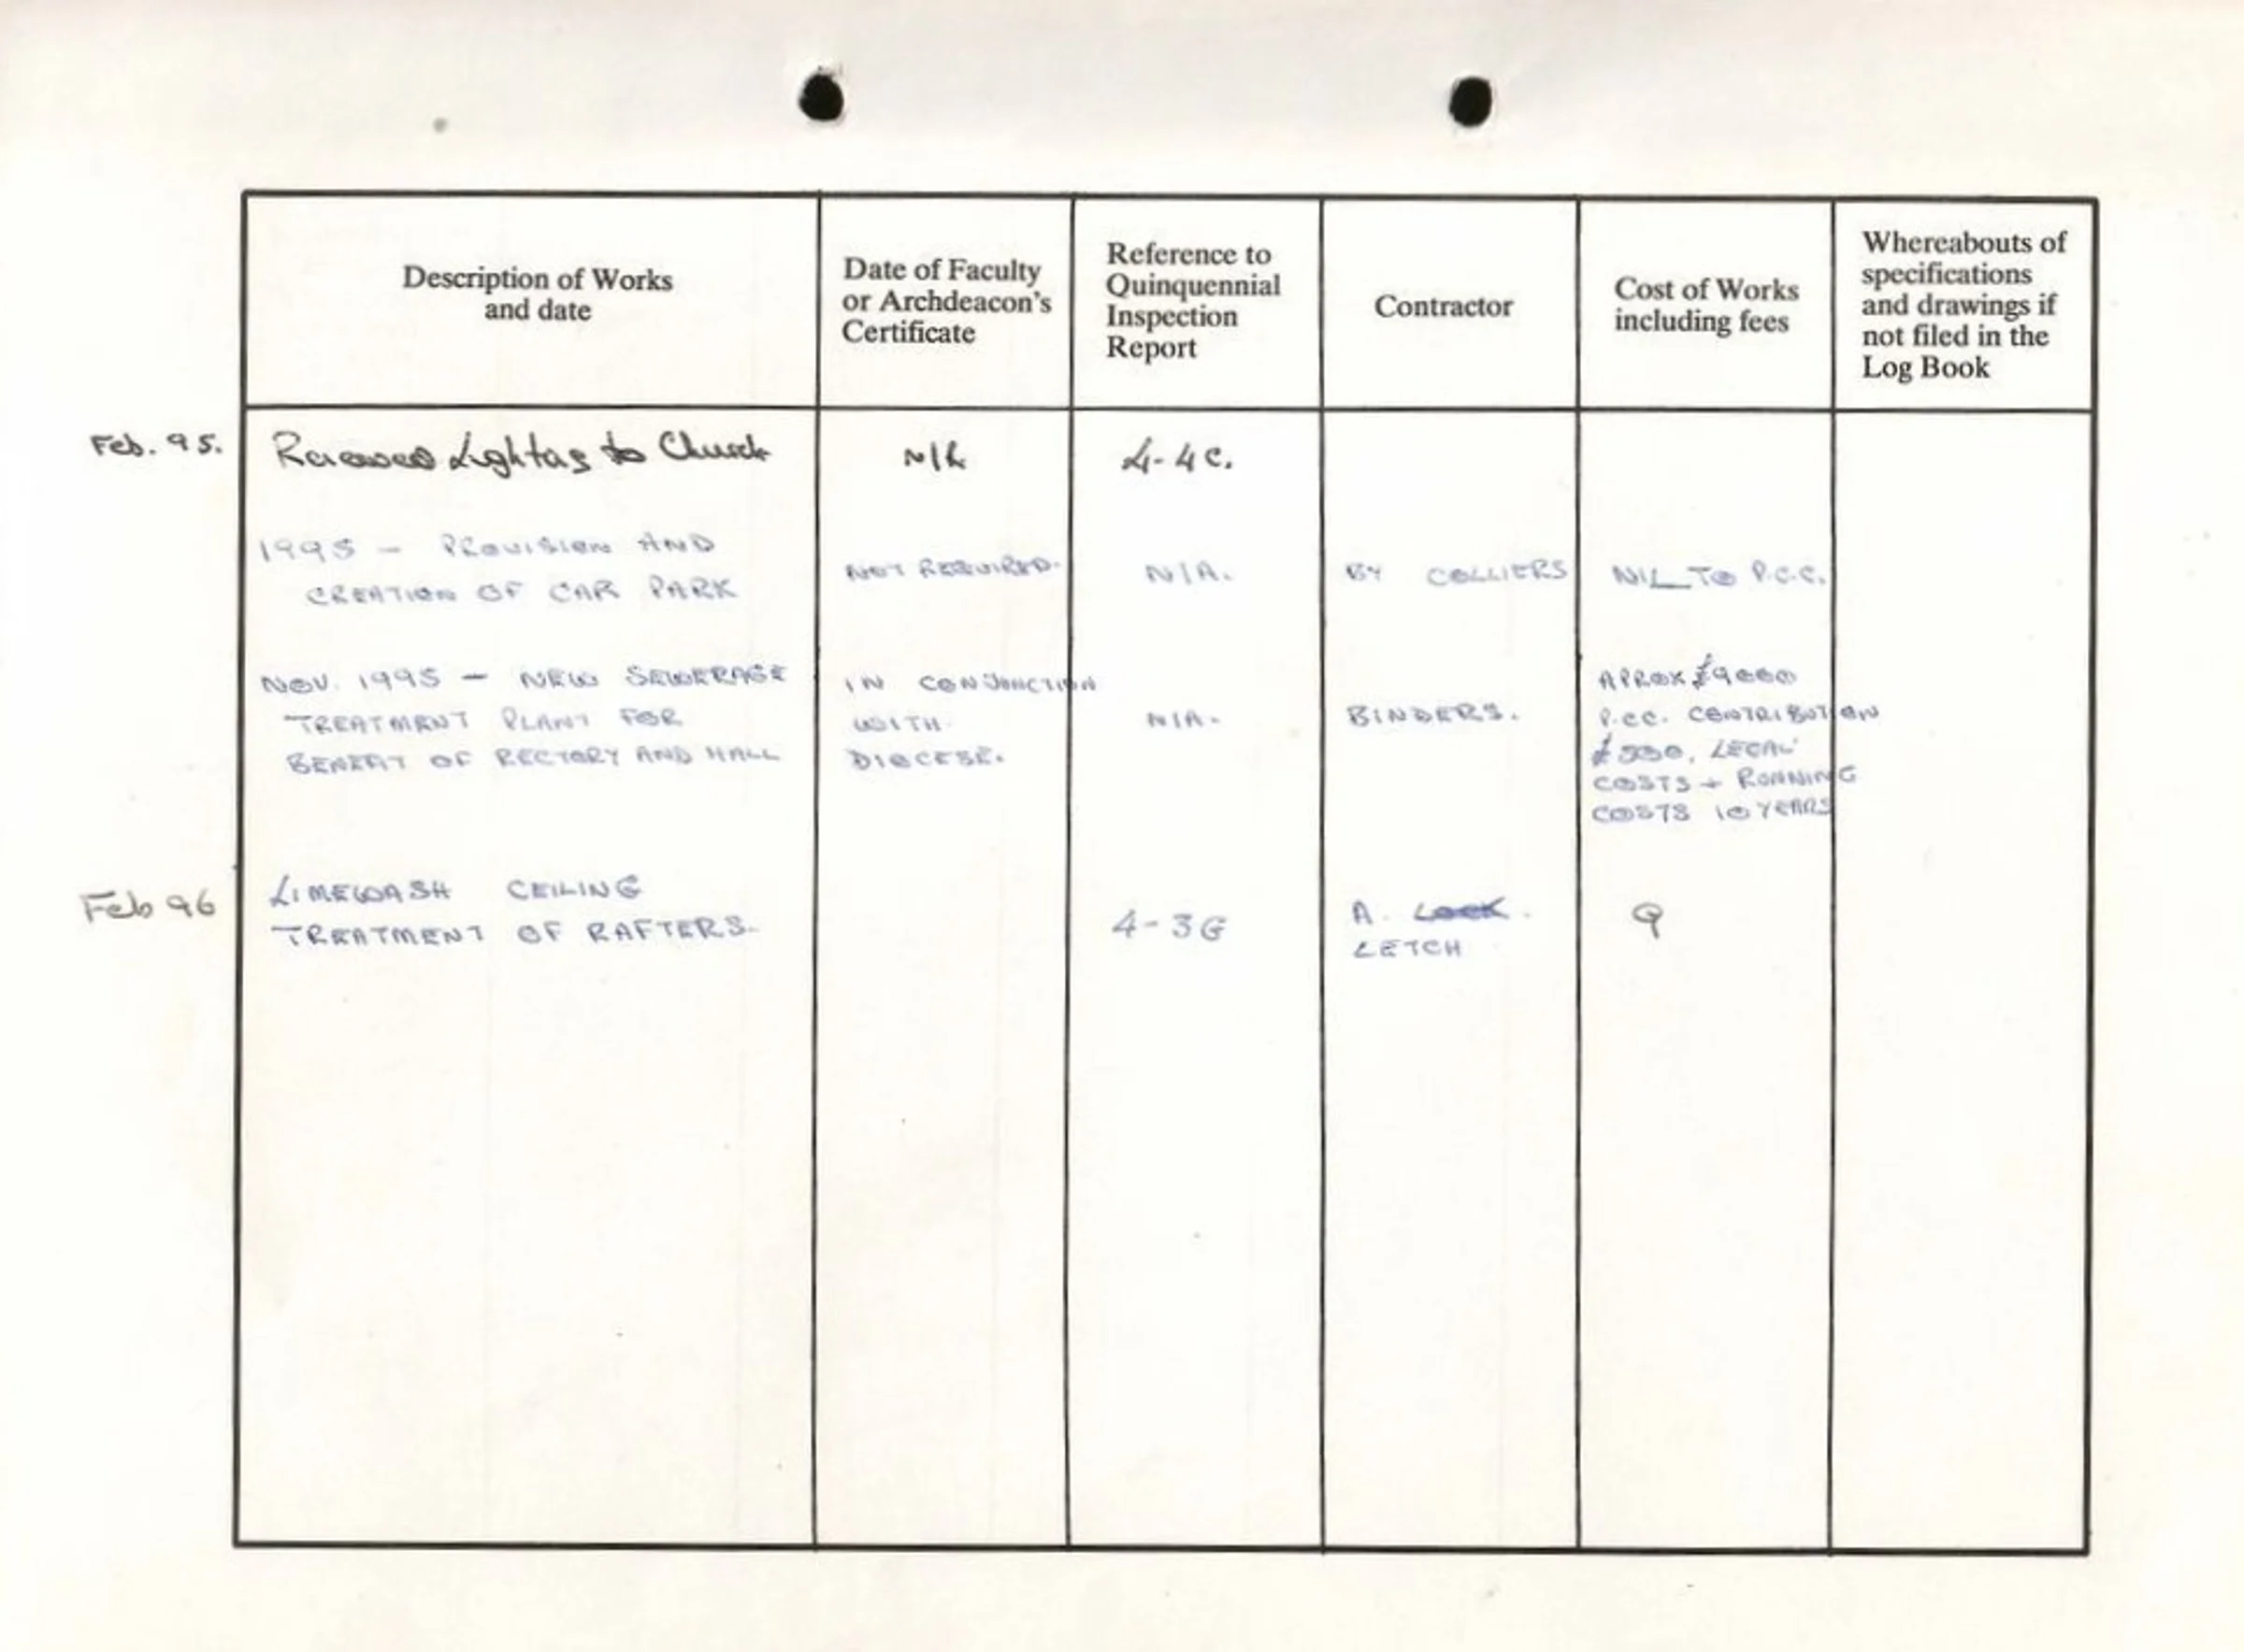 Description of Works
and date
Date of Faculty
or Archdeacon's
Certificate
Reference to
Quinquennial
Inspection
Report
Contractor
Cost of Works
including fees
Whereabouts of
specifications
and drawings if
not filed in the
Log Book
Feb. 95.
Renewed Lighting to Church
4-4c.
1995 - PROVISION AND
CREATION OF CAR PARK
NOT REQUIRED.
N/A.
BY COLLIERS
NIL TO P.C.C.
NOV. 1995 - NEW SEWERAGE
TREATMENT PLANT FOR
BENEFIT OF RECTORY AND HALL
IN CONJUNCTION
WITH
DIOCESE.
N/A.
BINDERS.
APROX £9000
P.CC. CONTRIBUTION
LEGAL
COSTS + RUNNING
COSTS 10 YEARS
Feb 96
LIMEWASH CEILING
TREATMENT OF RAFTERS.
4-3G
A. LOCK.
LETCH